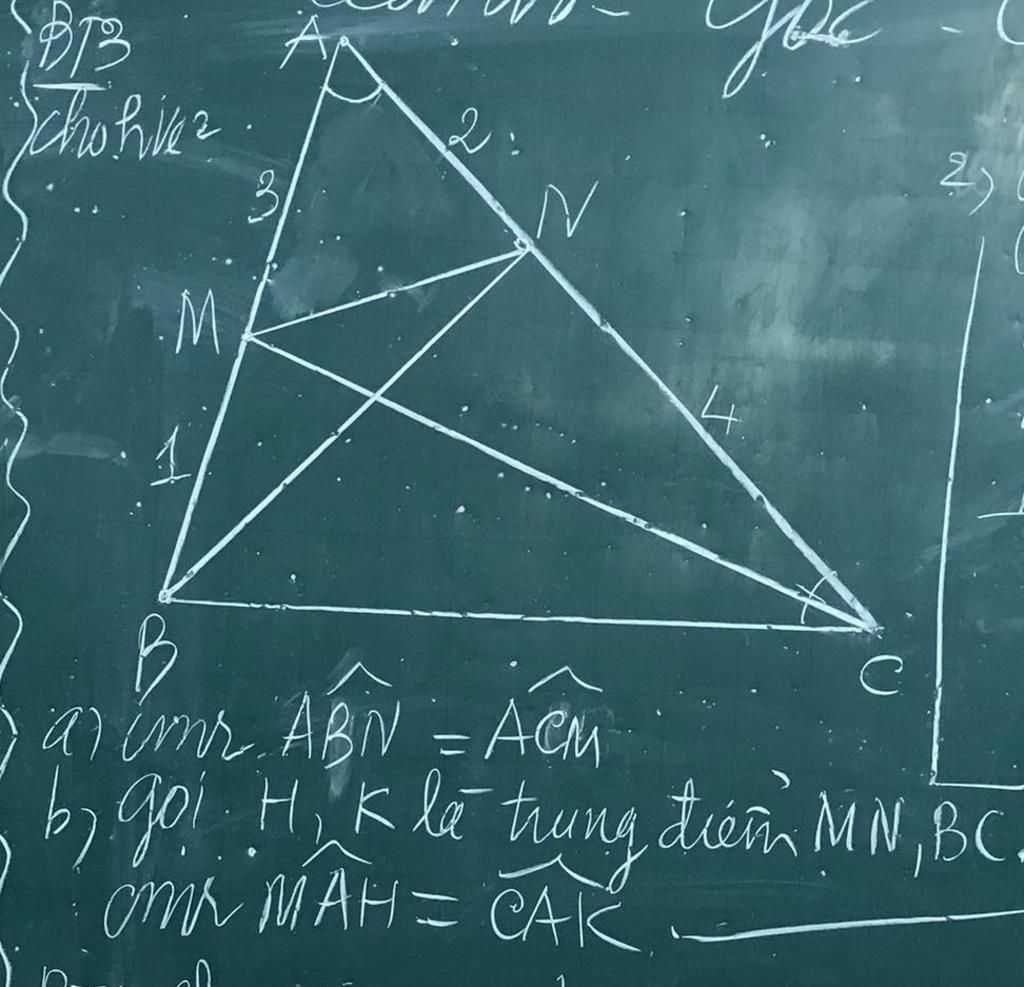 BT3
cho hive2
A
2
3
N
M
4
1
B
C
a) cmr ABN = ACM
b) gọi H, K là trung điểm MN, BC.
cmr MAH = CAK
2)